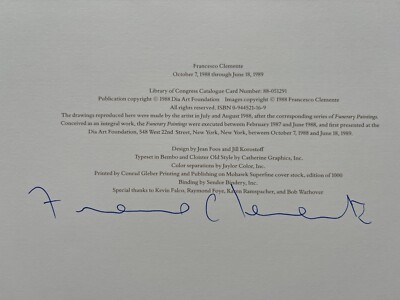 Francesco Clemente
October 7, 1988 through June 18, 1989
Library of Congress Catalogue Card Number: 88-071291
Publication copyright © 1988 Dia Art Foundation Images copyright © 1988 Francesco Clemente
All rights reserved. ISBN 0-944521-16-9
The drawings reproduced here were made by the artist in July and August 1988, after the corresponding series of Funerary Paintings.
Conceived as an integral work, the Funerary Paintings were executed between February 1987 and June 1988, and first presented at the
Dia Art Foundation, 548 West 22nd Street, New York, New York, between October 7, 1988 and June 18, 1989.
Design by Jean Foos and Jill Korostoff
Typeset in Bembo and Cloister Old Style by Catherine Graphics, Inc.
Color separations by Jaylor Color, Inc.
Printed by Conrad Gleber Printing and Publishing on Mohawk Superfine cover stock, edition of 1000
Binding by Sendor Bindery, Inc.
Special thanks to Kevin Falco, Raymond Foye, Karen Ramspacher, and Bob Warhover
Francesco Clemente